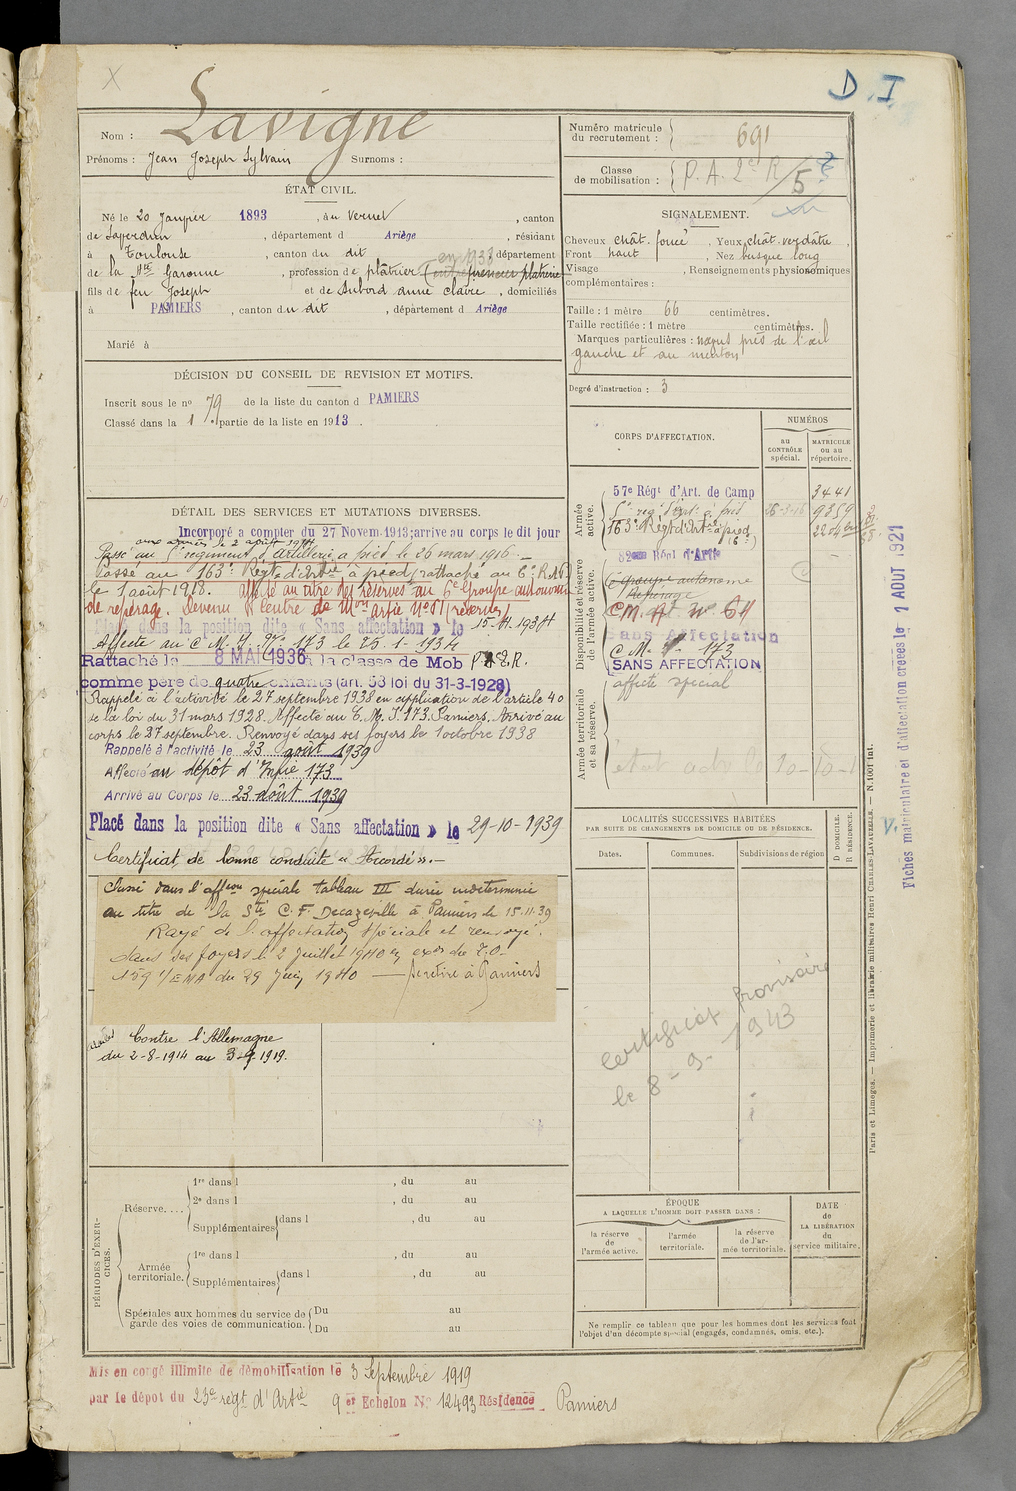 D. I
Lavigne
Nom :
Prénoms : Jean Joseph Sylvain Surnoms :
Numéro matricule du recrutement : 691
Classe de mobilisation : P. A. 2e R / 5
ÉTAT CIVIL.
Né le 20 Janvier 1893, au Vernet, canton
de Saverdun, département d Ariège, résidant
à Toulouse, canton du dit, département
en 1938
de la Hte Garonne, profession de plâtrier
fils de feu Joseph et de Subord Anne Claire, domiciliés
à PAMIERS, canton du dit, département d Ariège
Marié à
SIGNALEMENT.
Cheveux chât. foncé. Yeux chât. verdâtre,
Front haut, Nez busqué long
Visage, Renseignements physionomiques
complémentaires :
Taille : 1 mètre 66 centimètres.
Taille rectifiée : 1 mètre centimètres.
Marques particulières : nævus près de l'œil
gauche et au menton
Degré d'instruction : 3
DÉCISION DU CONSEIL DE REVISION ET MOTIFS.
Inscrit sous le no 79 de la liste du canton d PAMIERS
Classé dans la 1 partie de la liste en 1913.
DÉTAIL DES SERVICES ET MUTATIONS DIVERSES.
Incorporé a compter du 27 Novem.1913;arrive au corps le dit jour
aux armées le 2 août 1914
Passé au régiment d'artillerie à pied le 26 mars 1916.
Passé au 163e Régt d'Artrie à pied (rattaché au 6e R.A.P)
le 1 août 1918. affecté au titre des réserves au 6e Groupe autonome
de repérage. Devenu Centre de Mon Artie No 611 (réserves)
Placé dans la position dite « Sans affectation » le 15-4-1934
Affecté au C M I No 173 le 25-1-1934
Rattaché le 8 MAI 1936 à la classe de Mob P.A 2 R.
comme père de quatre enfants (art. 58 loi du 31-3-1928)
Rappelé à l'activité le 27 septembre 1938 en application de l'article 40
de la loi du 31 mars 1928. Affecté au C. M. I. 173 Pamiers. Arrivé au
corps le 27 septembre. Renvoyé dans ses foyers le 1 octobre 1938
Rappelé à l'activité le 23 août 1939
Affecté au dépôt d'Infie 173
Arrivé au Corps le 23 août 1939
Placé dans la position dite « Sans affectation » le 29-10-1939
Certificat de bonne conduite « Accordé ».
Classé dans l'affon spéciale tableau III durée indéterminée
au titre de la Sté C. F. Decazeville à Pamiers le 15.11.39
Rayé de l'affectation spéciale et renvoyé
dans ses foyers le 2 Juillet 1940 en exon du T.O.
159 1/EMA du 29 Juin 1940 — se retire à Pamiers
Contre l'Allemagne
du 2-8-1914 au 3-9-1919.
CORPS D'AFFECTATION.
NUMÉROS
au CONTRÔLE spécial.
MATRICULE ou au répertoire.
Armée active.
57e Régt d'Art. de Camp 3441
26-3-16 9359
163e Régt d'Artie à pied 2204
Disponibilité et réserve de l'armée active.
82 Régt d'Artie
6e groupe autonome
Repérage
C M. A No 611
Sans Affectation
C. M. I. 173
SANS AFFECTATION
Armée territoriale et sa réserve.
affecté spécial
LOCALITÉS SUCCESSIVES HABITÉES
PAR SUITE DE CHANGEMENTS DE DOMICILE OU DE RÉSIDENCE.
Dates. Communes. Subdivisions de région
D DOMICILE.
R RÉSIDENCE.
Certificat provisoire
le 8 - 9 - 1943
PÉRIODES D'EXERCICES.
Réserve....
1re dans l , du au
2e dans l , du au
Supplémentaires dans l , du au
Armée territoriale.
1re dans l , du au
Supplémentaires dans l , du au
Spéciales aux hommes du service de garde des voies de communication.
Du au
Du au
ÉPOQUE
A LAQUELLE L'HOMME DOIT PASSER DANS :
la réserve de l'armée active.
l'armée territoriale.
la réserve de l'armée territoriale.
DATE de LA LIBÉRATION du service militaire.
Ne remplir ce tableau que pour les hommes dont les services font
l'objet d'un décompte spécial (engagés, condamnés, omis, etc.).
Paris et Limoges. — Imprimerie et librairie militaires Henri CHARLES-LAVAUZELLE. — N. 1001 int.
Fiches matriculaire et d'affectation créées le 1 AOUT 1921
Mis en congé illimité de démobilisation le 3 Septembre 1919
par le dépot du 23e regt d'Artie 9 er Echelon No 12493 Résidence Pamiers